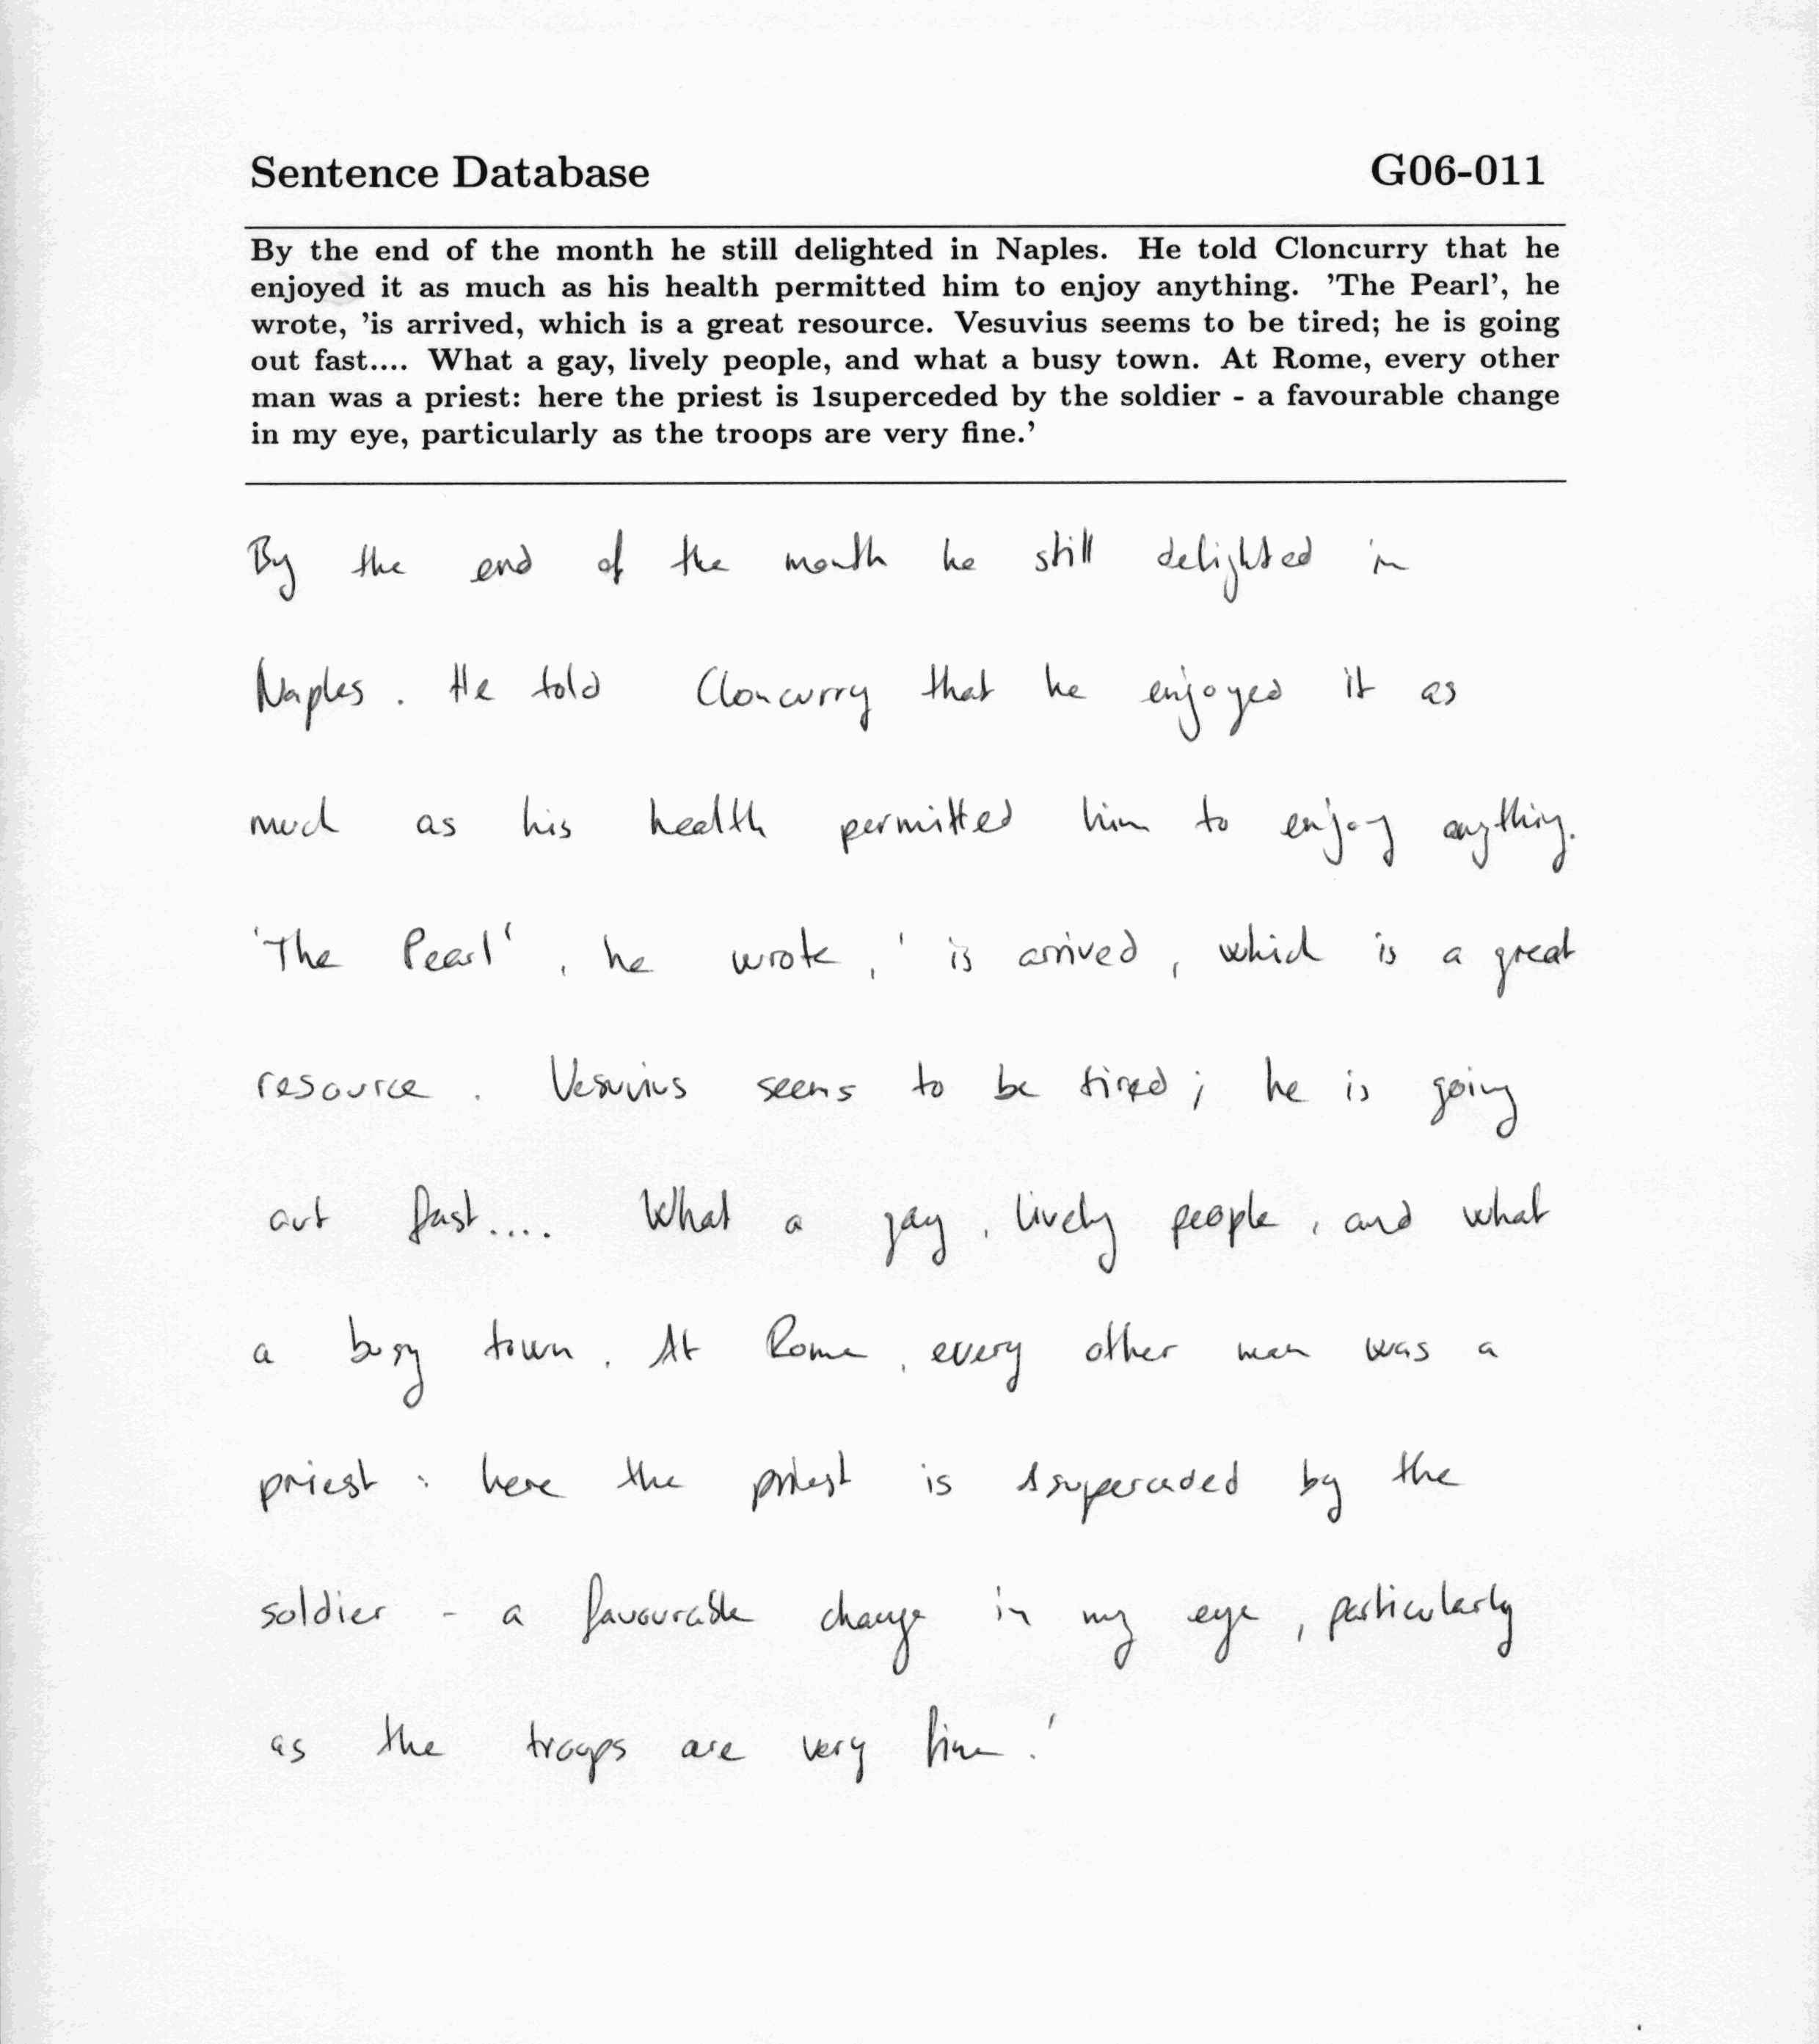 Sentence Database G06-011
By the end of the month he still delighted in Naples. He told Cloncurry that he
enjoyed it as much as his health permitted him to enjoy anything. 'The Pearl', he
wrote, 'is arrived, which is a great resource. Vesuvius seems to be tired; he is going
out fast.... What a gay, lively people, and what a busy town. At Rome, every other
man was a priest: here the priest is 1superceded by the soldier - a favourable change
in my eye, particularly as the troops are very fine.'
By the end of the month he still delighted in
Naples. He told Cloncurry that he enjoyed it as
much as his health permitted him to enjoy anything.
'The Pearl', he wrote, 'is arrived, which is a great
resource. Vesuvius seems to be tired; he is going
out fast.... What a gay, lively people, and what
a busy town. At Rome, every other man was a
priest: here the priest is 1superceded by the
soldier - a favourable change in my eye, particularly
as the troops are very fine.'